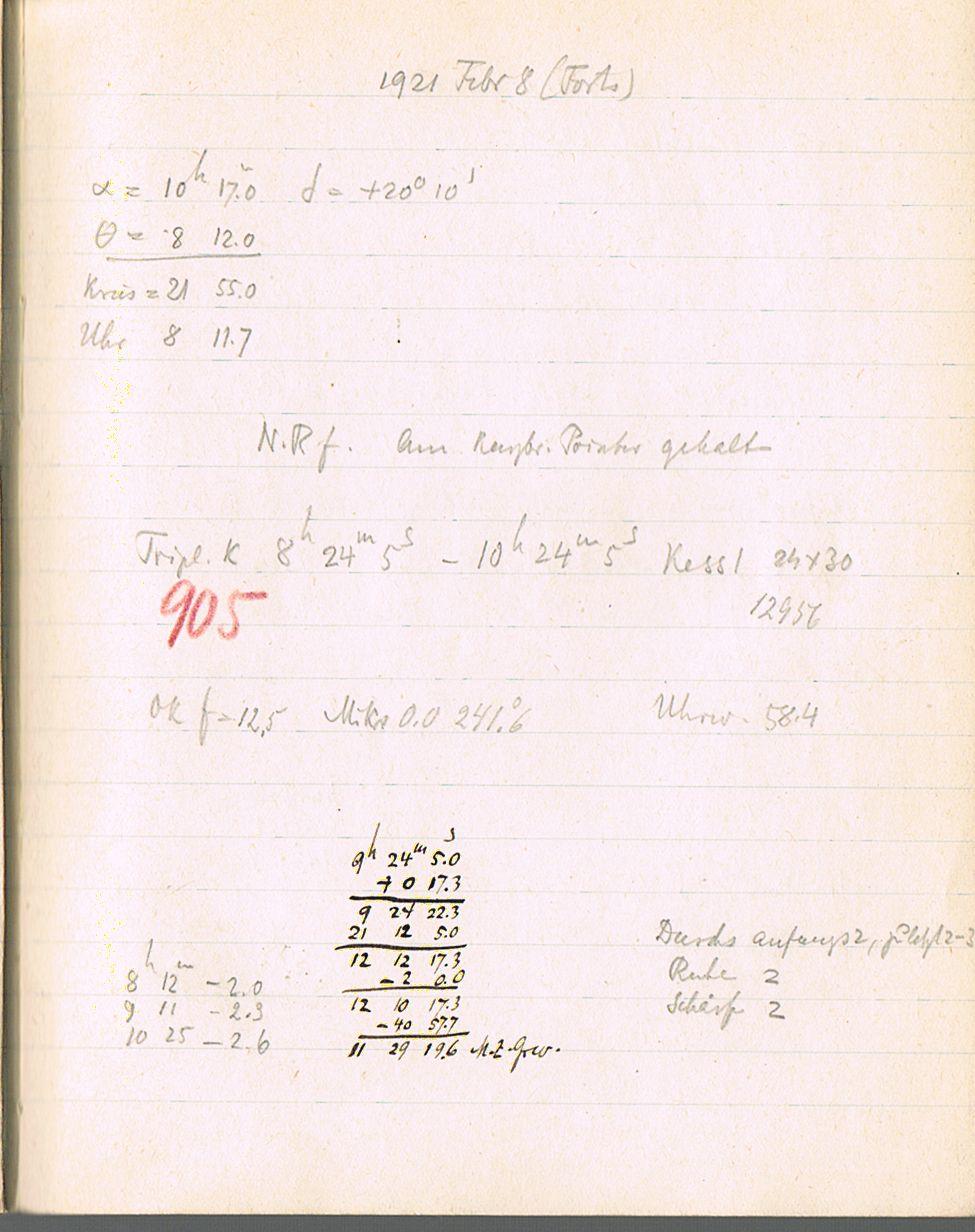 1921 Febr 8 (Forts)
α = 10h 17.m0 δ = +20° 10'
θ = 8 12.0
Kreis = 21 55.0
Uhr 8 11.7
N.R f. Am Pointer gehalt
Tripl. K 8h 24m 5s – 10h 24m 5s Kessl 24x30
905
12956
OK f = 12,5 Mikr 0.0 241.°6 Uhrw. 58.4
9h 24m 5.0s
+ 0 17.3
9 24 22.3
21 12 5.0
12 12 17.3
– 2 0.0
12 10 17.3
– 40 57.7
11 29 19.6 M.Z. Grw.
8h 12m – 2.0
9 11 – 2.3
10 25 – 2.6
Durchs anfangs 2, zuletzt 2–3
Ruhe 2
Schärfe 2